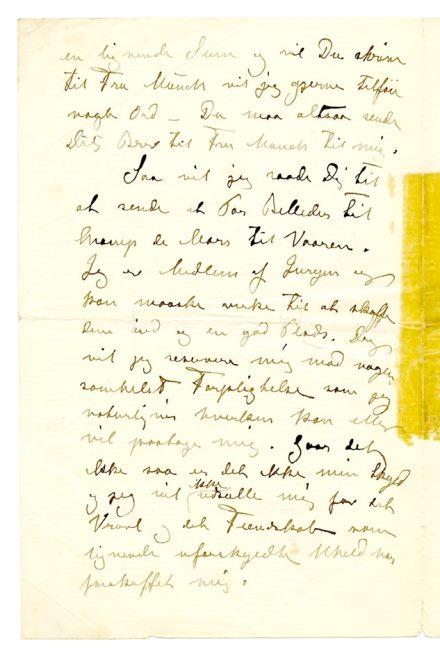 en lignende Sum og vil Du skrive
til Fru Munch vil jeg gjerne tilföie
nogle Ord – Du maa altsaa sende
Dit Brev til Fru Munch til mig.
Saa vil jeg raade Dig til
at sende et Par Billeder til
Champs de Mars til Vaaren.
Jeg er Medlem af Juryen og
kan maaske virke til at skaffe
dem ind og en god Plads. Dog
vil jeg reservere mig mod nogen
somhelst Forpligtelse som jeg
naturligvis hverken kan eller
vil paatage mig. Gaar det
ikke saa er det ikke min Skyld
og jeg vil ikke udsætte mig for det
Vrövl og det Fiendskab som
lignende uforskyldte Uheld har
forskaffet mig.